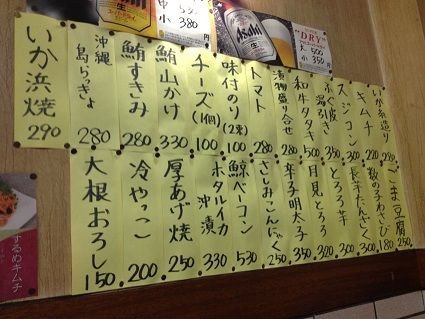 小 380円
Asahi
生
Asahi
生
DRY
小 350円
いか糸造り 280
キムチ 220
スジコン 300
ふぐ皮湯引き 350
和牛タタキ 500
漬物盛り合せ 280
トマト 200
味付のり(2束) 100
チーズ(1個) 100
鮪山かけ 330
鮪すきみ 280
沖縄島らっきょ 280
いか浜焼 290
ごま豆腐 250
数の子わさび 180
長芋たんざく 300
とろろ芋 300
月見とろろ 320
辛子明太子 350
さしみこんにゃく 250
鯨ベーコン 530
ホタルイカ沖漬 330
厚あげ焼 250
冷やっこ 200
大根おろし 150
するめキムチ